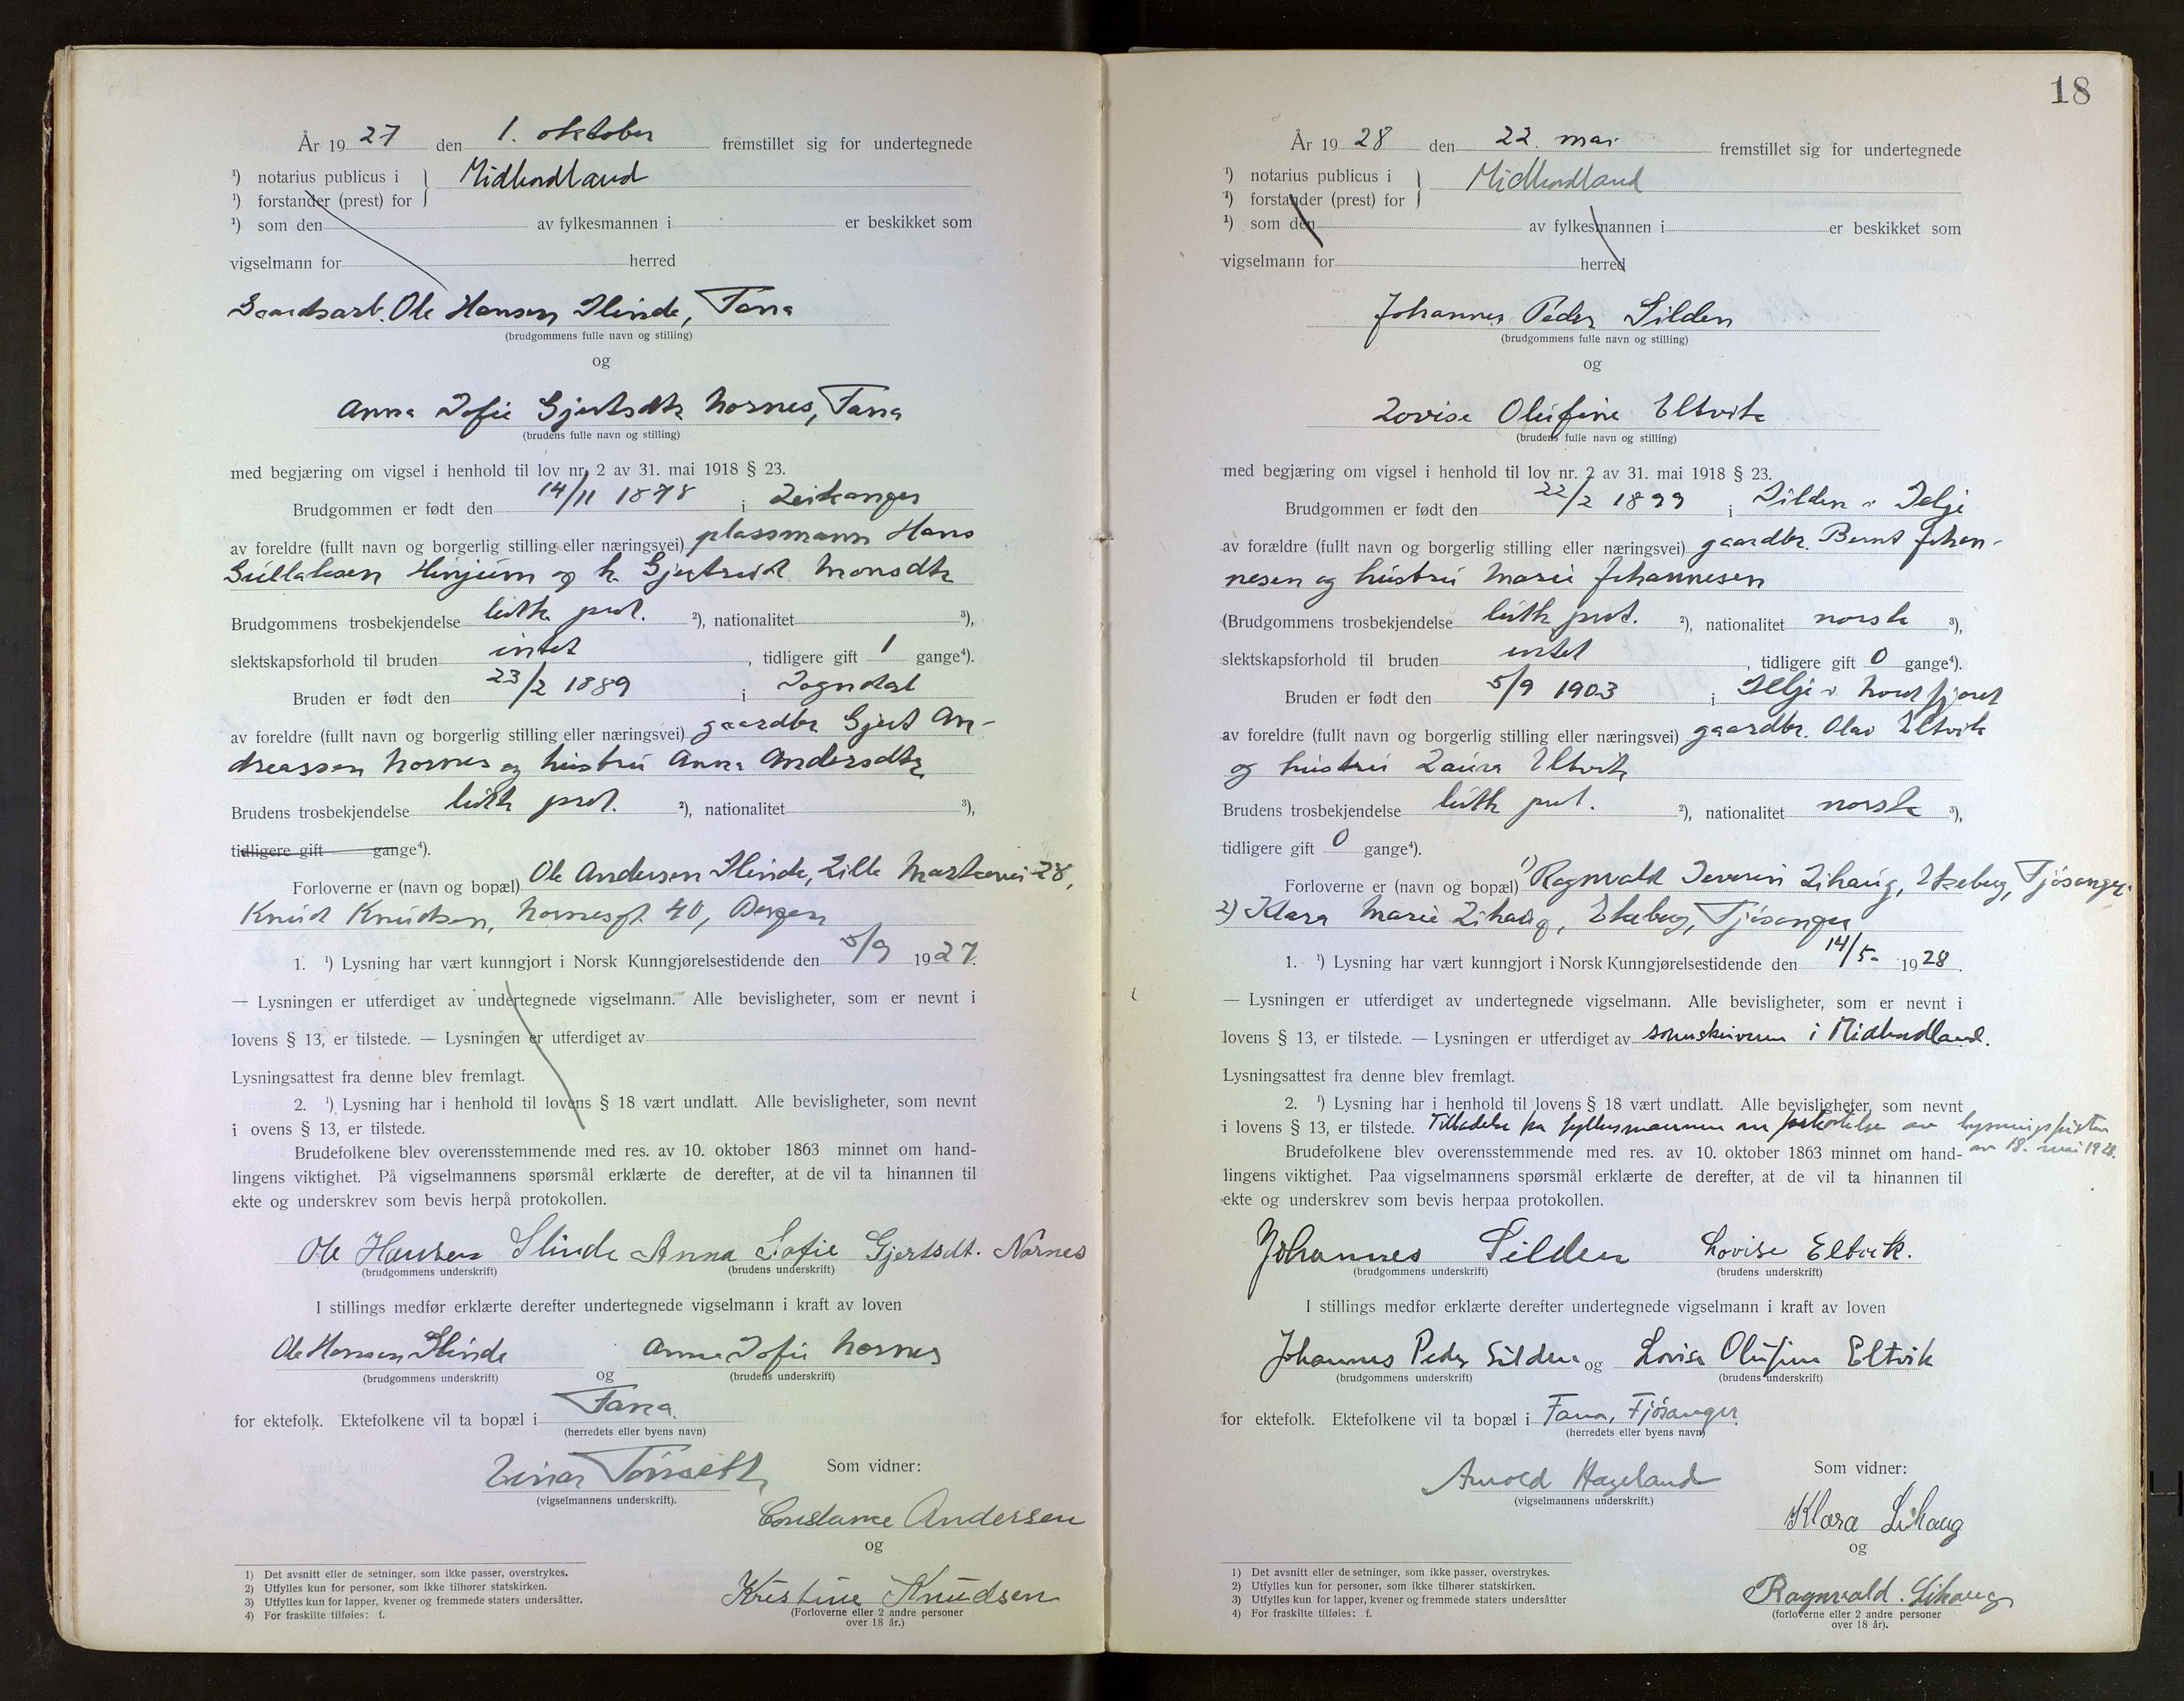 År 1927 den 1. oktober fremstillet sig for undertegnede
¹) notarius publicus i } Midhordland
¹) forstander (prest) for
¹) som den av fylkesmannen i er beskikket som
vigselmann for herred
Gaardsarb. Ole Hansen Slinde, Fana
(brudgommens fulle navn og stilling)
og
Anna Sofie Gjertsdtr Nornes, Fana
(brudens fulle navn og stilling)
med begjæring om vigsel i henhold til lov nr. 2 av 31. mai 1918 § 23.
Brudgommen er født den 14/11 1878 i Leikanger
av foreldre (fullt navn og borgerlig stilling eller næringsvei) plassmann Hans
Gullaksen Hinjum og h. Gjertrud Monsdtr
Brudgommens trosbekjendelse luth. prot. ²), nationalitet ³),
slektskapsforhold til bruden intet, tidligere gift 1 gange⁴).
Bruden er født den 23/2 1889 i Sogndal
av foreldre (fullt navn og borgerlig stilling eller næringsvei) gaardbr Gjert An-
dreassen Nornes og hustru Anna Andersdtr
Brudens trosbekjendelse luth prot. ²), nationalitet ³),
tidligere gift gange⁴).
Forloverne er (navn og bopæl) Ole Andersen Slinde, Lille Markevei 28,
Knud Knudsen, Nornesgt. 40, Bergen
1. ¹) Lysning har vært kunngjort i Norsk Kunngjørelsestidende den 5/9 1927.
— Lysningen er utferdiget av undertegnede vigselmann. Alle bevisligheter, som er nevnt i
lovens § 13, er tilstede. — Lysningen er utferdiget av
Lysningsattest fra denne blev fremlagt.
2. ¹) Lysning har i henhold til lovens § 18 vært undlatt. Alle bevisligheter, som nevnt
i ovens § 13, er tilstede.
Brudefolkene blev overensstemmende med res. av 10. oktober 1863 minnet om hand-
lingens viktighet. På vigselmannens spørsmål erklærte de derefter, at de vil ta hinannen til
ekte og underskrev som bevis herpå protokollen.
Ole Hansen Slinde Anna Sofie Gjertsdt. Nornes
(brudgommens underskrift) (brudens underskrift)
I stillings medfør erklærte derefter undertegnede vigselmann i kraft av loven
Ole Hansen Slinde og Anna Sofie Nornes
(brudgommens underskrift) (brudens underskrift)
for ektefolk. Ektefolkene vil ta bopæl i Fana.
(herredets eller byens navn)
Einar Tönseth
(vigselmannens underskrift).
Som vidner:
Constance Andersen
og
Kristine Knudsen
(Forloverne eller 2 andre personer
over 18 år.)
1) Det avsnitt eller de setninger, som ikke passer, overstrykes.
2) Utfylles kun for personer, som ikke tilhører statskirken.
3) Utfylles kun for lapper, kvener og fremmede staters undersåtter.
4) For fraskilte tilføies: f.
18
År 1928 den 22. mai fremstillet sig for undertegnede
¹) notarius publicus i } Midhordland
¹) forstander (prest) for
¹) som den av fylkesmannen i er beskikket som
vigselmann for herred
Johannes Peder Silden
(brudgommens fulle navn og stilling)
og
Lovise Olufine Eltvik
(brudens fulle navn og stilling)
med begjæring om vigsel i henhold til lov nr. 2 av 31. mai 1918 § 23.
Brudgommen er født den 22/2 1899 i Silden i Selje
av forældre (fullt navn og borgerlig stilling eller næringsvei) gaardbr. Bernt Johan-
nesen og hustru Marie Johannesen
(Brudgommens trosbekjendelse luth prot. ²), nationalitet norsk ³),
slektskapsforhold til bruden intet, tidligere gift 0 gange⁴).
Bruden er født den 5/9 1903 i Selje i Nordfjord
av foreldre (fullt navn og borgerlig stilling eller næringsvei) gaardbr. Olav Eltvik
og hustru Laura Eltvik
Brudens trosbekjendelse luth prot. ²), nationalitet norsk ³),
tidligere gift 0 gange⁴).
Forloverne er (navn og bopæl) 1) Ragnvald Severin Lihaug, Ekeberg, Fjösanger.
2) Klara Marie Lihaug, Ekeberg, Fjösanger
1. ¹) Lysning har vært kunngjort i Norsk Kunngjørelsestidende den 14/5- 1928.
— Lysningen er utferdiget av undertegnede vigselmann. Alle bevisligheter, som er nevnt i
lovens § 13, er tilstede. — Lysningen er utferdiget av sorenskriveren i Midhordland.
Lysningsattest fra denne blev fremlagt.
2. ¹) Lysning har i henhold til lovens § 18 vært undlatt. Alle bevisligheter, som nevnt
i lovens § 13, er tilstede. Tilladelse fra fylkesmannen om forkortelse av lysningsfristen
av 18. mai 1928.
Brudefolkene blev overensstemmende med res. av 10. oktober 1863 minnet om hand-
lingens viktighet. Paa vigselmannens spørsmål erklærte de derefter, at de vil ta hinannen til
ekte og underskrev som bevis herpaa protokollen.
Johannes Silden Lovise Eltvik.
(brudgommens underskrift) (brudens underskrift)
I stillings medfør erklærte derefter undertegnede vigselmann i kraft av loven
Johannes Peder Silden og Lovise Olufine Eltvik
(brudgommens underskrift) (brudens underskrift)
for ektefolk. Ektefolkene vil ta bopæl i Fana, Fjösanger.
(herredets eller byens navn)
Arnold Hageland
(vigselmannens underskrift.)
Som vidner:
Klara Lihaug
og
Ragnvald. Lihaug
(forloverne eller 2 andre personer
over 18 år).
1) Det avsnitt eller de setninger, som ikke passer, overstrykes.
2) Utfylles kun for personer, som ikke tilhører statskirken.
3) Utfylles kun for lapper, kvener og fremmede staters undersåtter
4) For fraskilte tilføies: f.